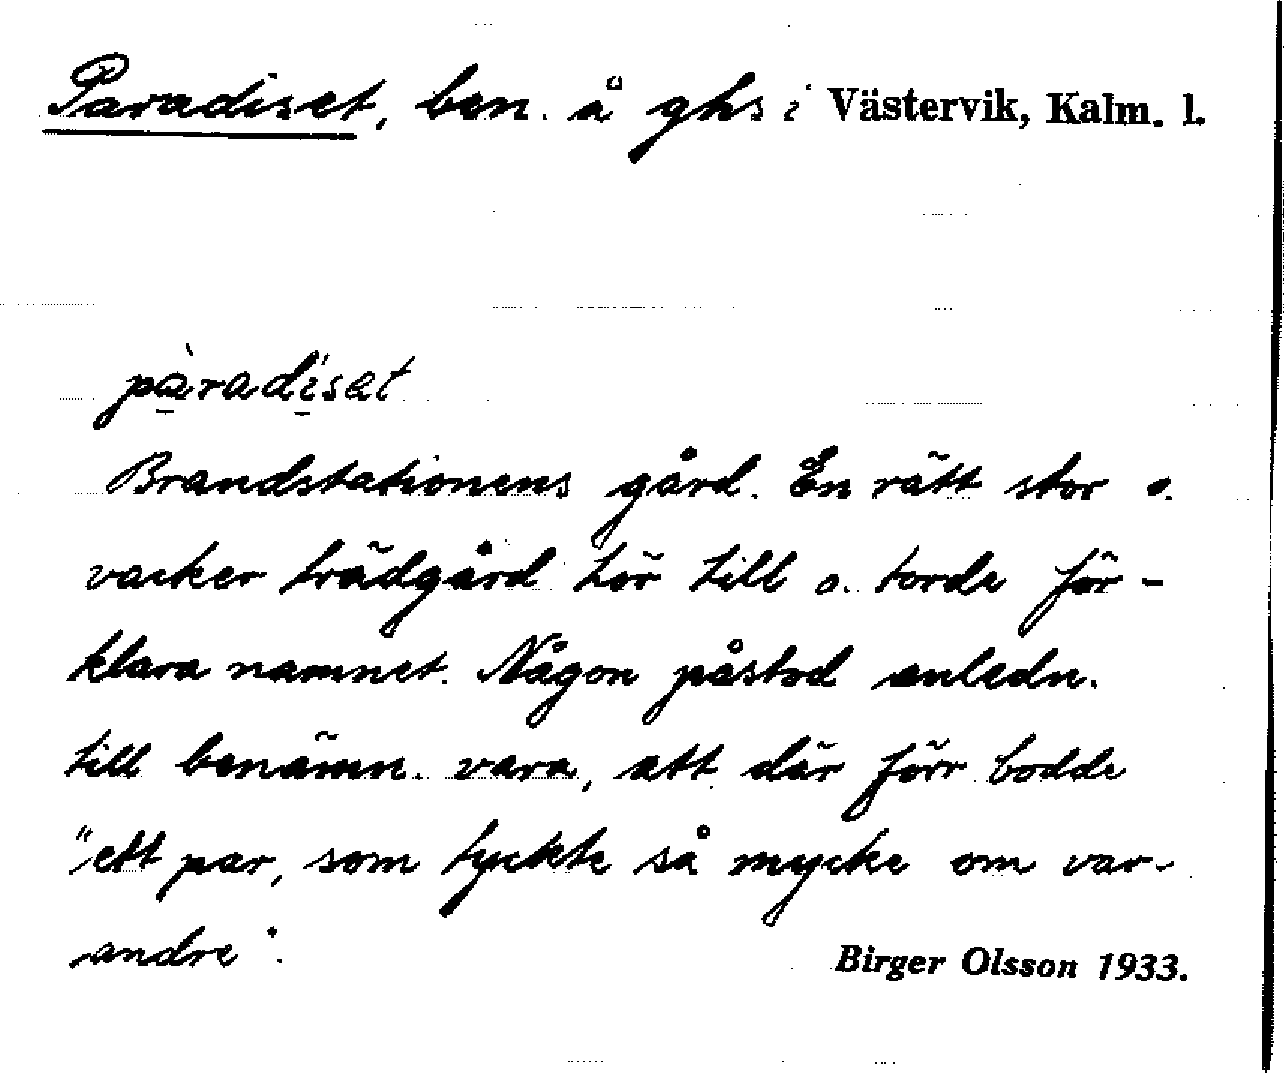 Paradiset, ben. å ghs i Västervik, Kalm. l.
pàradi̋set
Brandstationens gård. En rätt stor o.
vacker trädgård hör till o. torde för-
klara namnet. Någon påstod anledn.
till benämn. vara, att där förr bodde
"ett par, som tyckte så mycke om var-
andre".
Birger Olsson 1933.